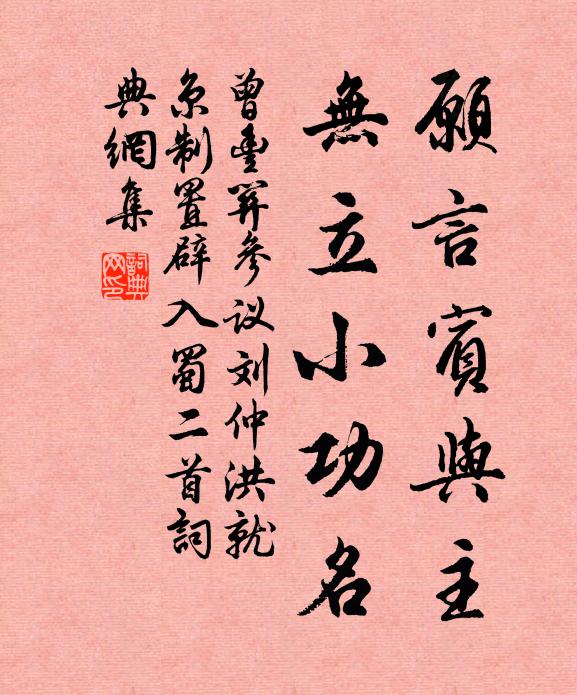 願言賓與主
無立小功名
曾豊羿參议刘仲洪就
京制置辟入蜀二首詞
典網集
詞典网印